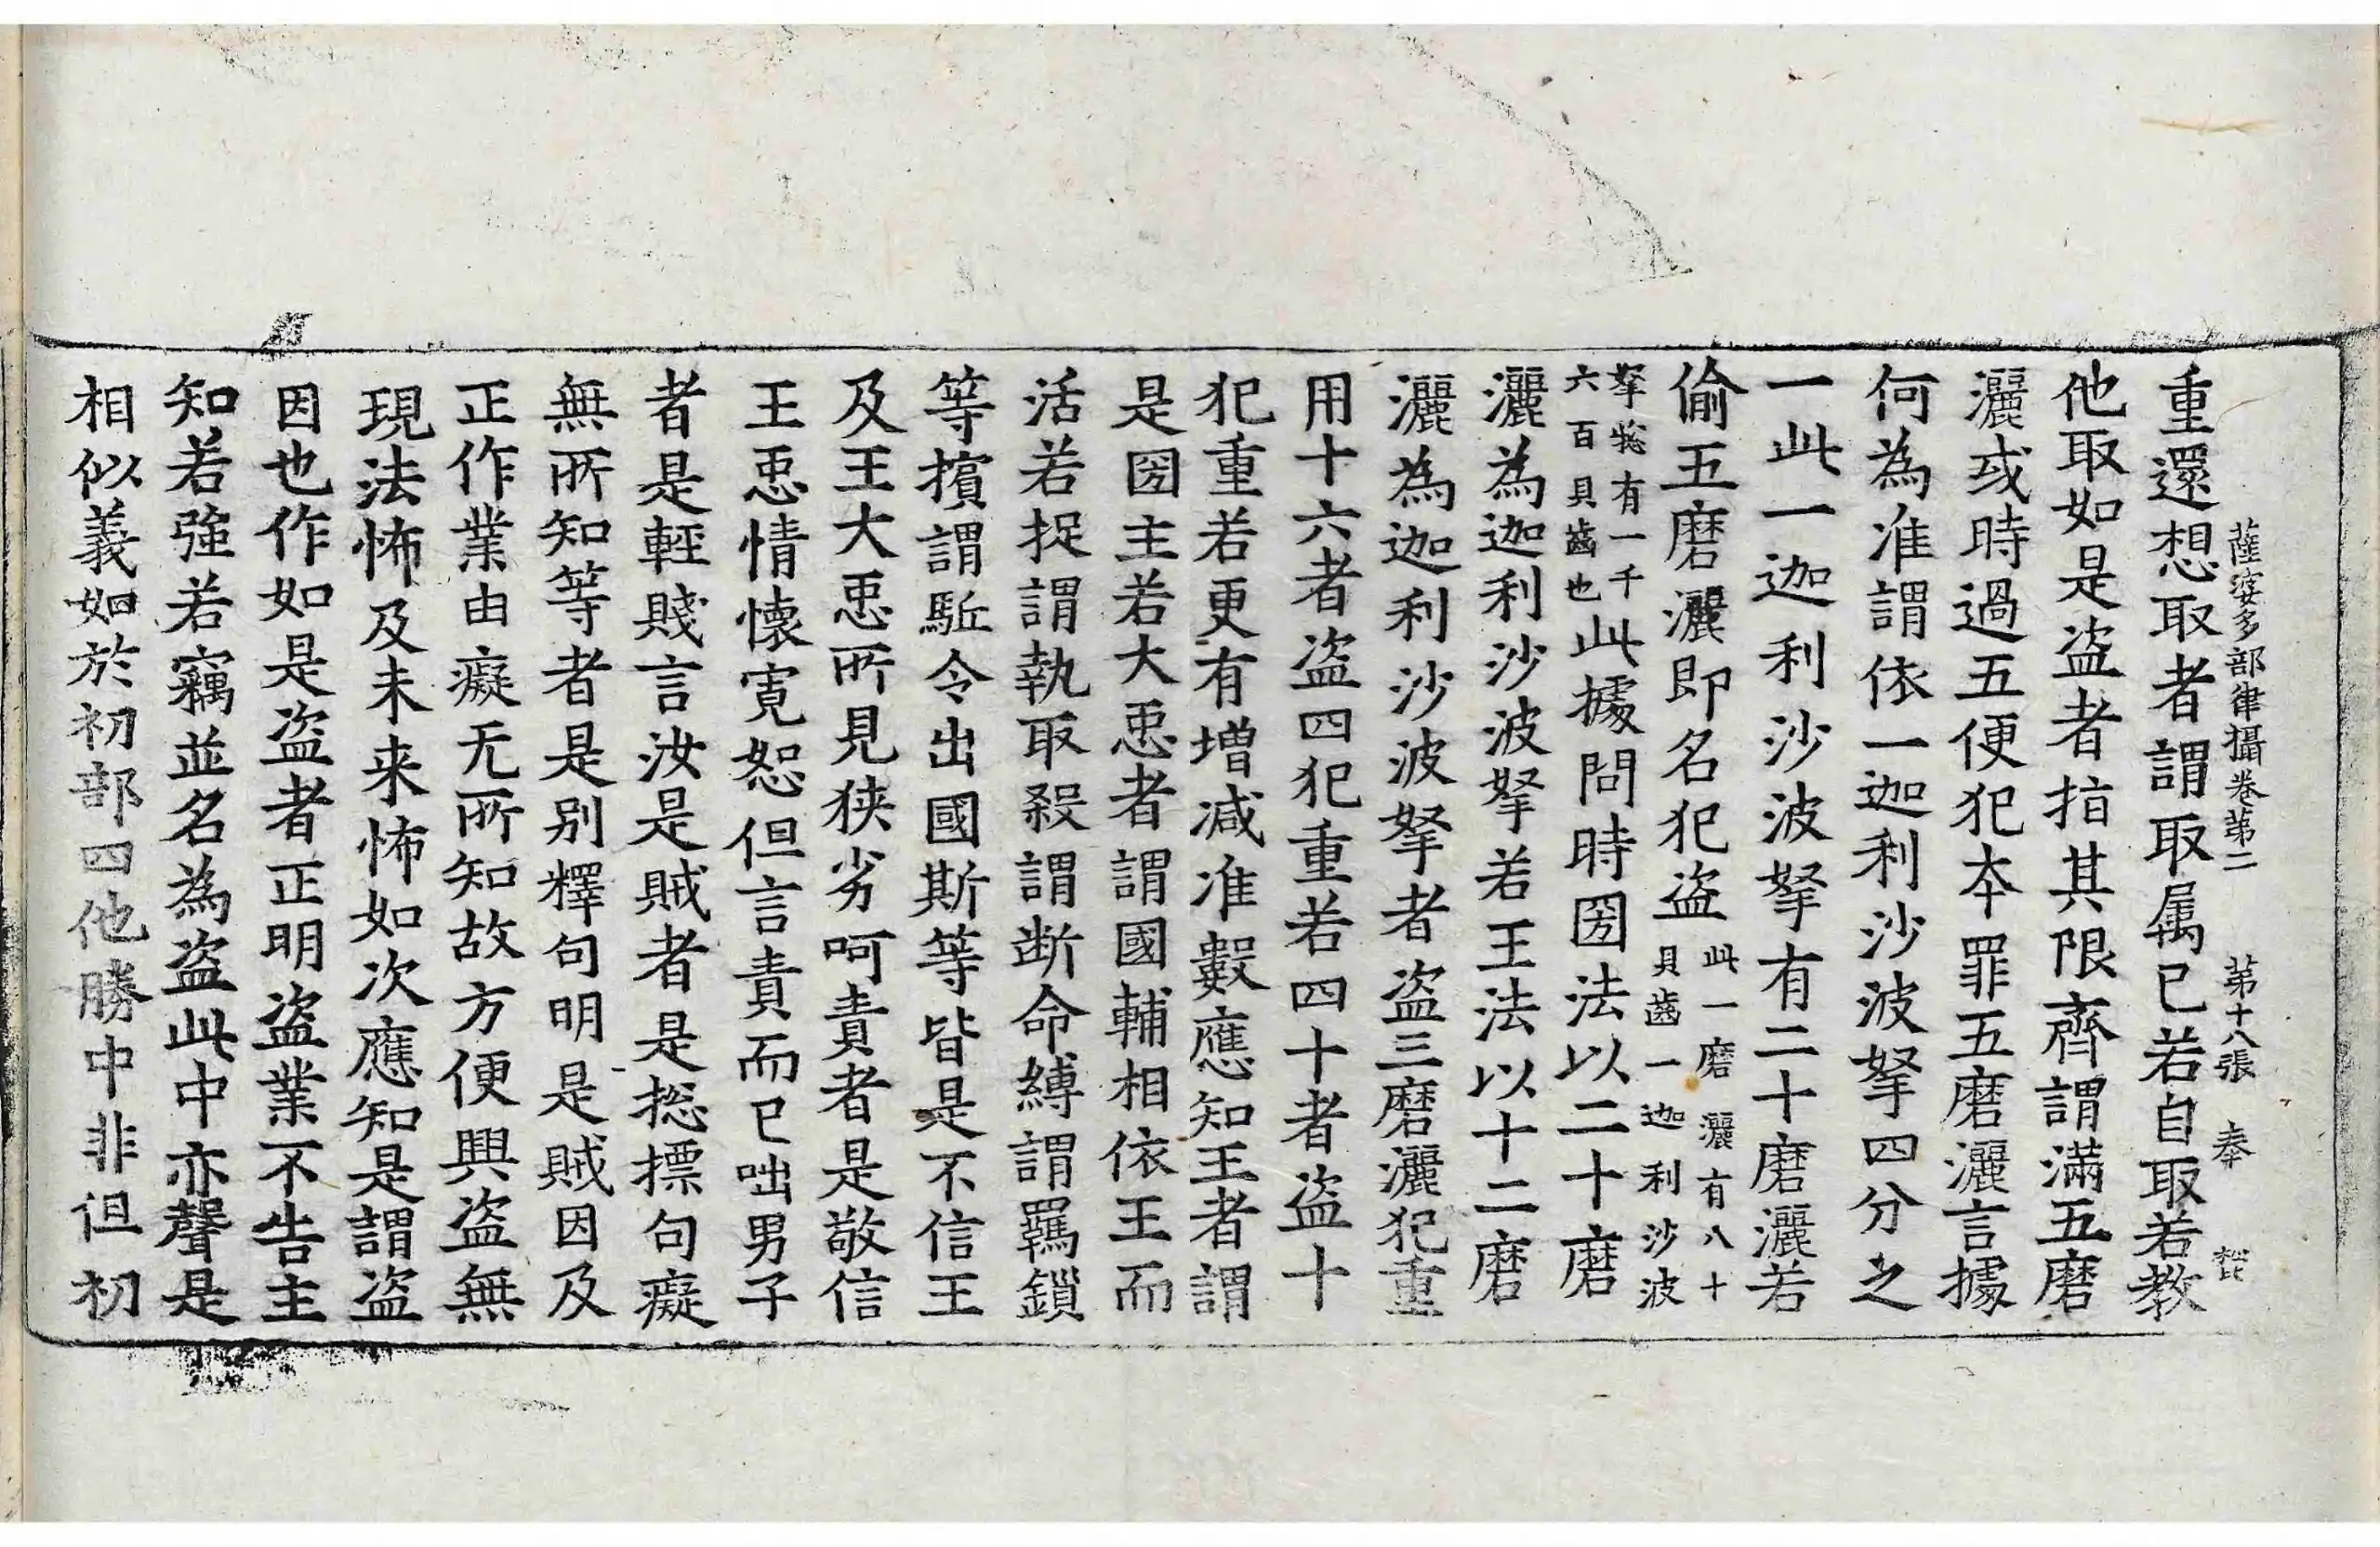 薩婆多部律攝卷第二　第十八張　奉
重還想取者謂取属已若自取若教
他取如是盗者指其限齊謂滿五磨
灑或時過五便犯夲罪五磨灑言據
何為准謂依一迦利沙波拏四分之
一此一迦利沙波拏有二十磨灑若
偷五磨灑即名犯盗此一磨灑有八十
貝齒一迦利沙波
拏惣有一千
六百貝齒也此據問時國法以二十磨
灑為迦利沙波拏若王法以十二磨
灑為迦利沙波拏者盗三磨灑犯重
用十六者盗四犯重若四十者盗十
犯重若更有增减准數應知王者謂
是国主若大臣者謂國輔相依王而
活若捉謂執取殺謂断命縛謂羈鎖
等擯謂駈令出國斯等皆是不信王
及王大臣所見狭劣呵責者是敬信
王臣情懷寛恕但言責而已咄男子
者是輕賤言汝是賊者是捴摽句癡
無所知等者是别釋句明是賊因及
正作業由癡无所知故方便興盗無
現法怖及未来怖如次應知是謂盗
因也作如是盗者正明盗業不告主
知若強若竊並名為盗此中亦聲是
相似義如於初部四他勝中非但初